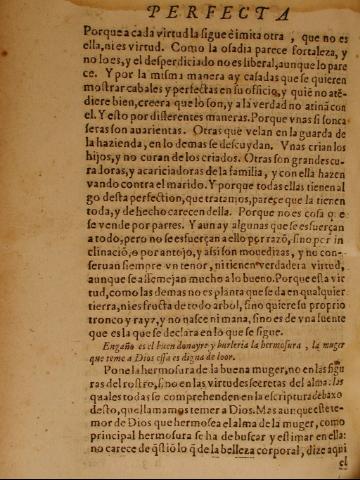 PERFECTA
Porque a cada virtud la sigue è imita otra, que no es
ella, ni es virtud. Como la osadia parece fortaleza, y
no lo es, y el desperdiciado no es liberal, aunque lo pare
ce. Y por la misma manera ay casadas que se quieren
mostrar cabales y perfectas en su officio, y quiē no atē-
diere bien, creera que lo son, y a la verdad no atinā con
el. Y esto por differentes maneras. Porque vnas si son ca
seras son auarientas. Otras que velan en la guarda de
la hazienda, en lo demas se descuydan. Vnas crian los
hijos, y no curan de los criados. Otras son grandes cu-
radoras, y acariciadoras de la familia, y con ella hazen
vando contra el marido. Y porque todas ellas tienen al
go desta perfection, que tratamos, parece que la tienen
toda, y de hecho carecen della. Porque no es cosa que
se vende por partes. Y aun ay algunas que se esfuerçan
a todo, pero no se esfuerçan a ello por razō, sino por in
clinaciō, o por antojo, y assi son mouedizas, y no con-
seruan siempre vn tenor, ni tienen verdadera virtud,
aunque se assemejan mucho a lo bueno. Porque esta vir
tud, como las demas no es planta que se da en qualquier
tierra, ni es fructa de todo arbol, sino quiere su proprio
tronco y rayz, y no nasce ni mana, sino es de vna fuente
que es la que se declara en lo que se sigue.
Engaño es el buen donayre y burleria la hermosura, la muger
que teme a Dios essa es digna de loor.
Pone la hermosura de la buena muger, no en las figu
ras del rostro, sino en las virtudes secretas del alma: las
quales todas se comprehenden en la escriptura debaxo
desto, que llamamos temer a Dios. Mas aunque este te-
mor de Dios que hermosea el alma de la muger, como
principal hermosura se ha de buscar y estimar en ella:
no carece de q̃stiō lo q̃ de la belleza corporal, dize aqui
el